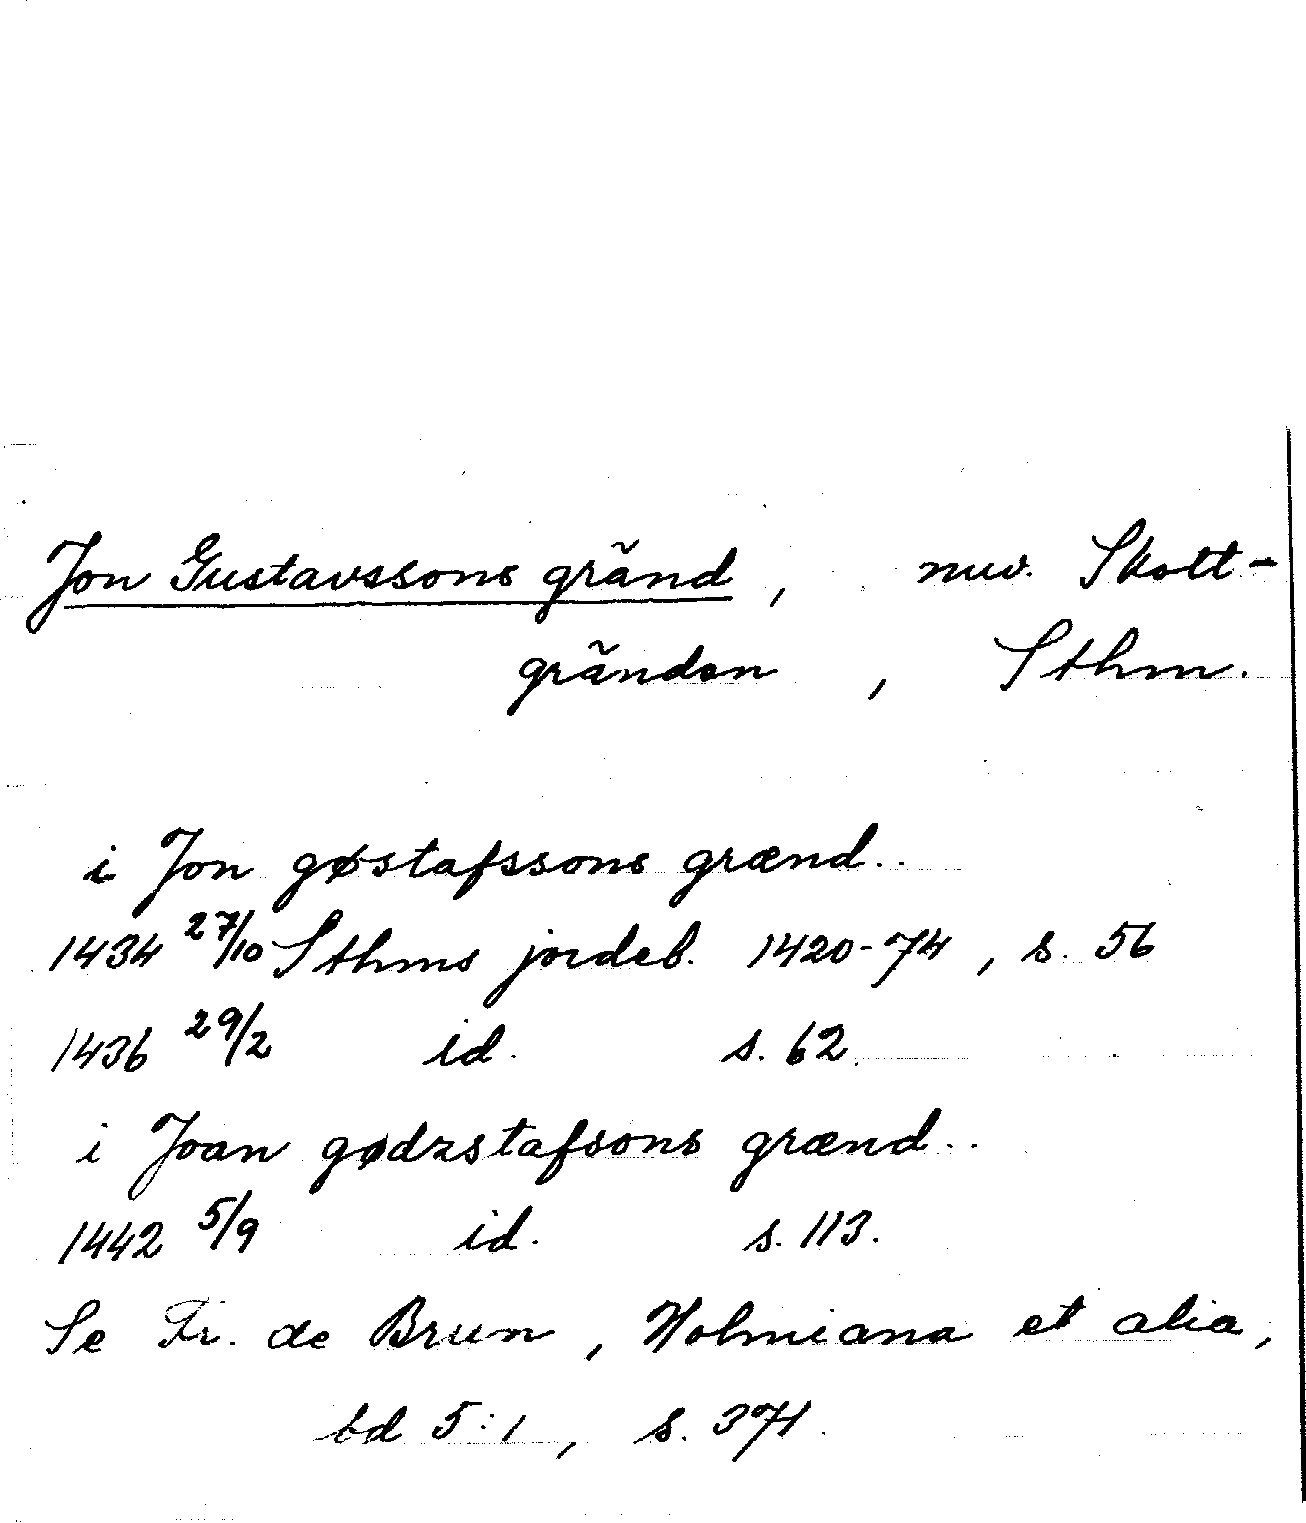 Jon Gustavssons gränd, nuv. Skott-
gränden, Sthm.
i Jon gøstafssons grænd..
1434 27/10 Sthms jordeb. 1420-74, s. 56
1436 29/2 id. s. 62.
i Joan gødzstafsons grænd..
1442 5/9 id. s. 113.
Se Fr. de Brun, Holmiana et alia,
bd 5:1, s. 371.